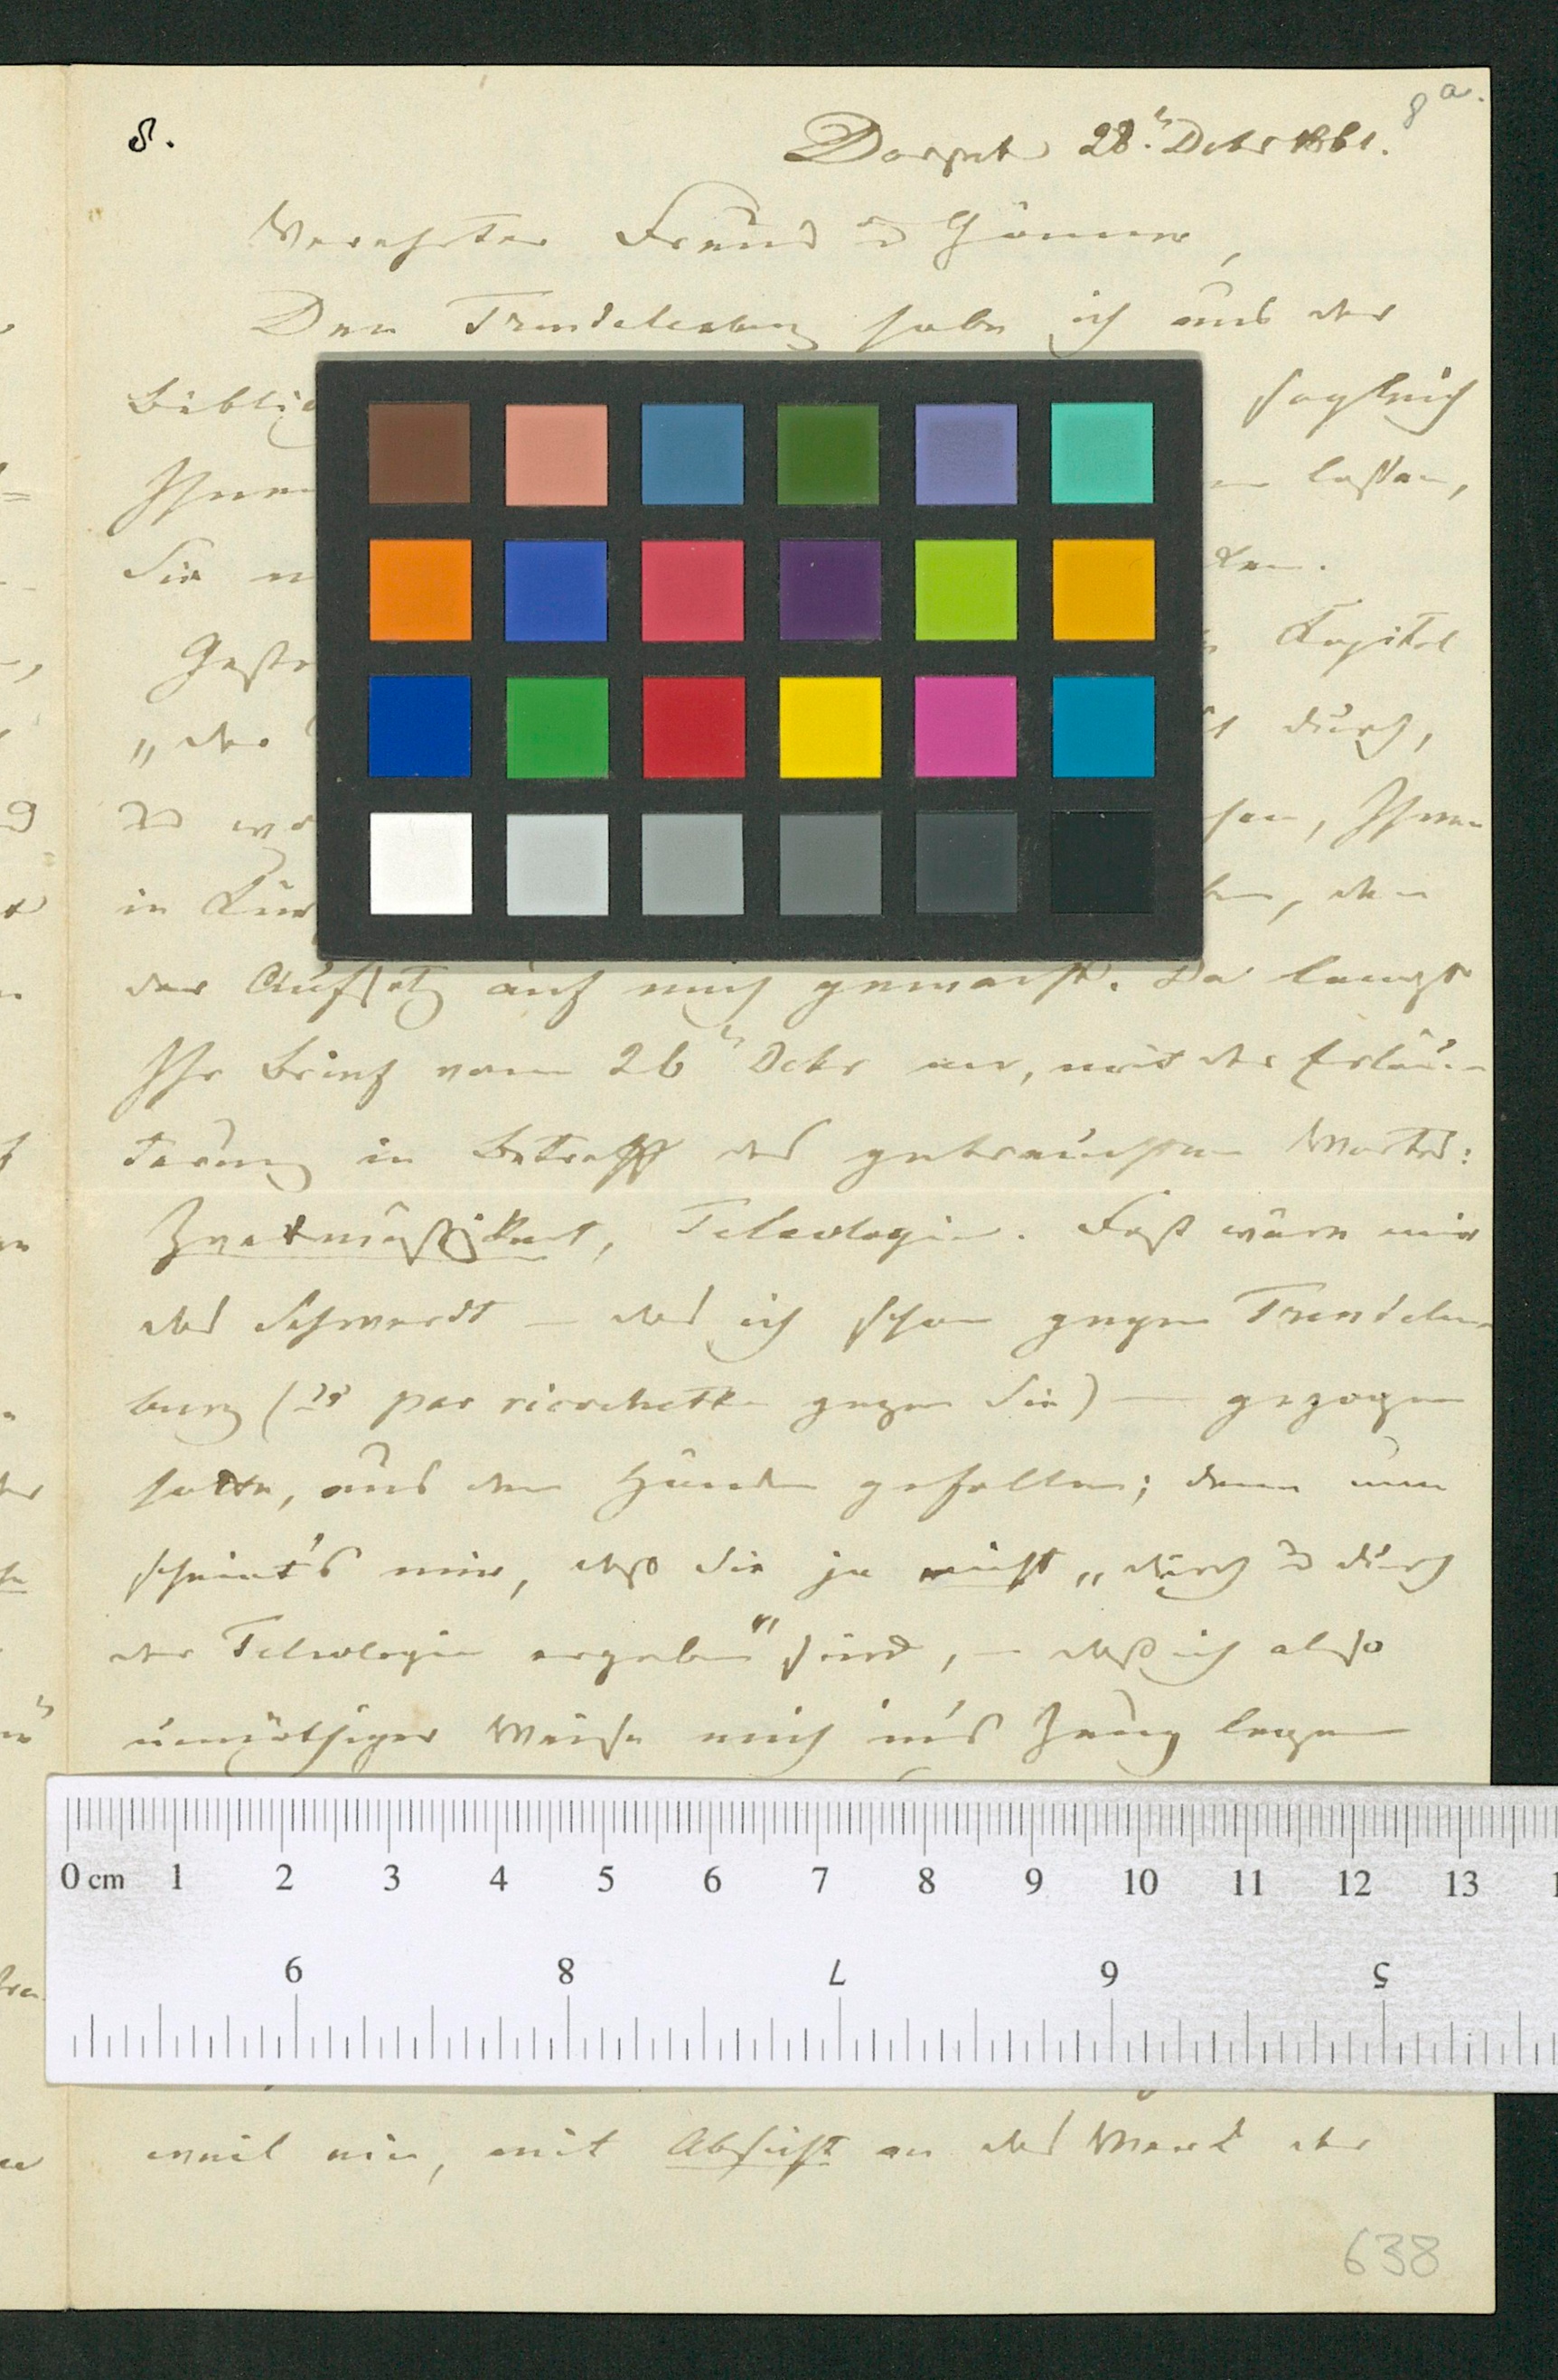 8.
8a.
Dorpat 28. Debr 1861.
Verehrter Freund u Gönner,
Den Trendelenburg habe ich aus der
sogleich
Ihnen lassen,
Sie
Kapitel
„der durch,
Ihnen
in
der Aufsatz auf mich gemacht. Da langt
Ihr Brief vom 26 Debr an, mit der Erläu-
terung in Betreff des gebrauchten Wortes:
Zwekmäßigkeit, Teleologie. Fast wäre mir
das Schwerdt – das ich schon gegen Trendelen-
burg ( par ricochette gegen Sie) — gezogen
hatte, aus den Händen gefallen; denn nun
scheint's mir, daß Sie ja nicht „durch u durch
der Teleologie ergeben" sind, – daß ich also
unnöthiger Weise mich in's Zeug legen
0 cm 1 2 3 4 5 6 7 8 9 10 11 12 13
9 8 7 6 5
weil ein, mit Absicht an das Werk der
638